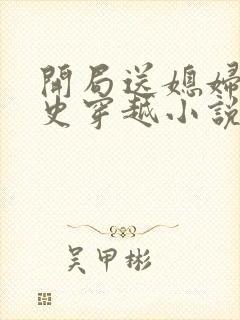 開局送媳婦
史穿越小說
吳甲彬